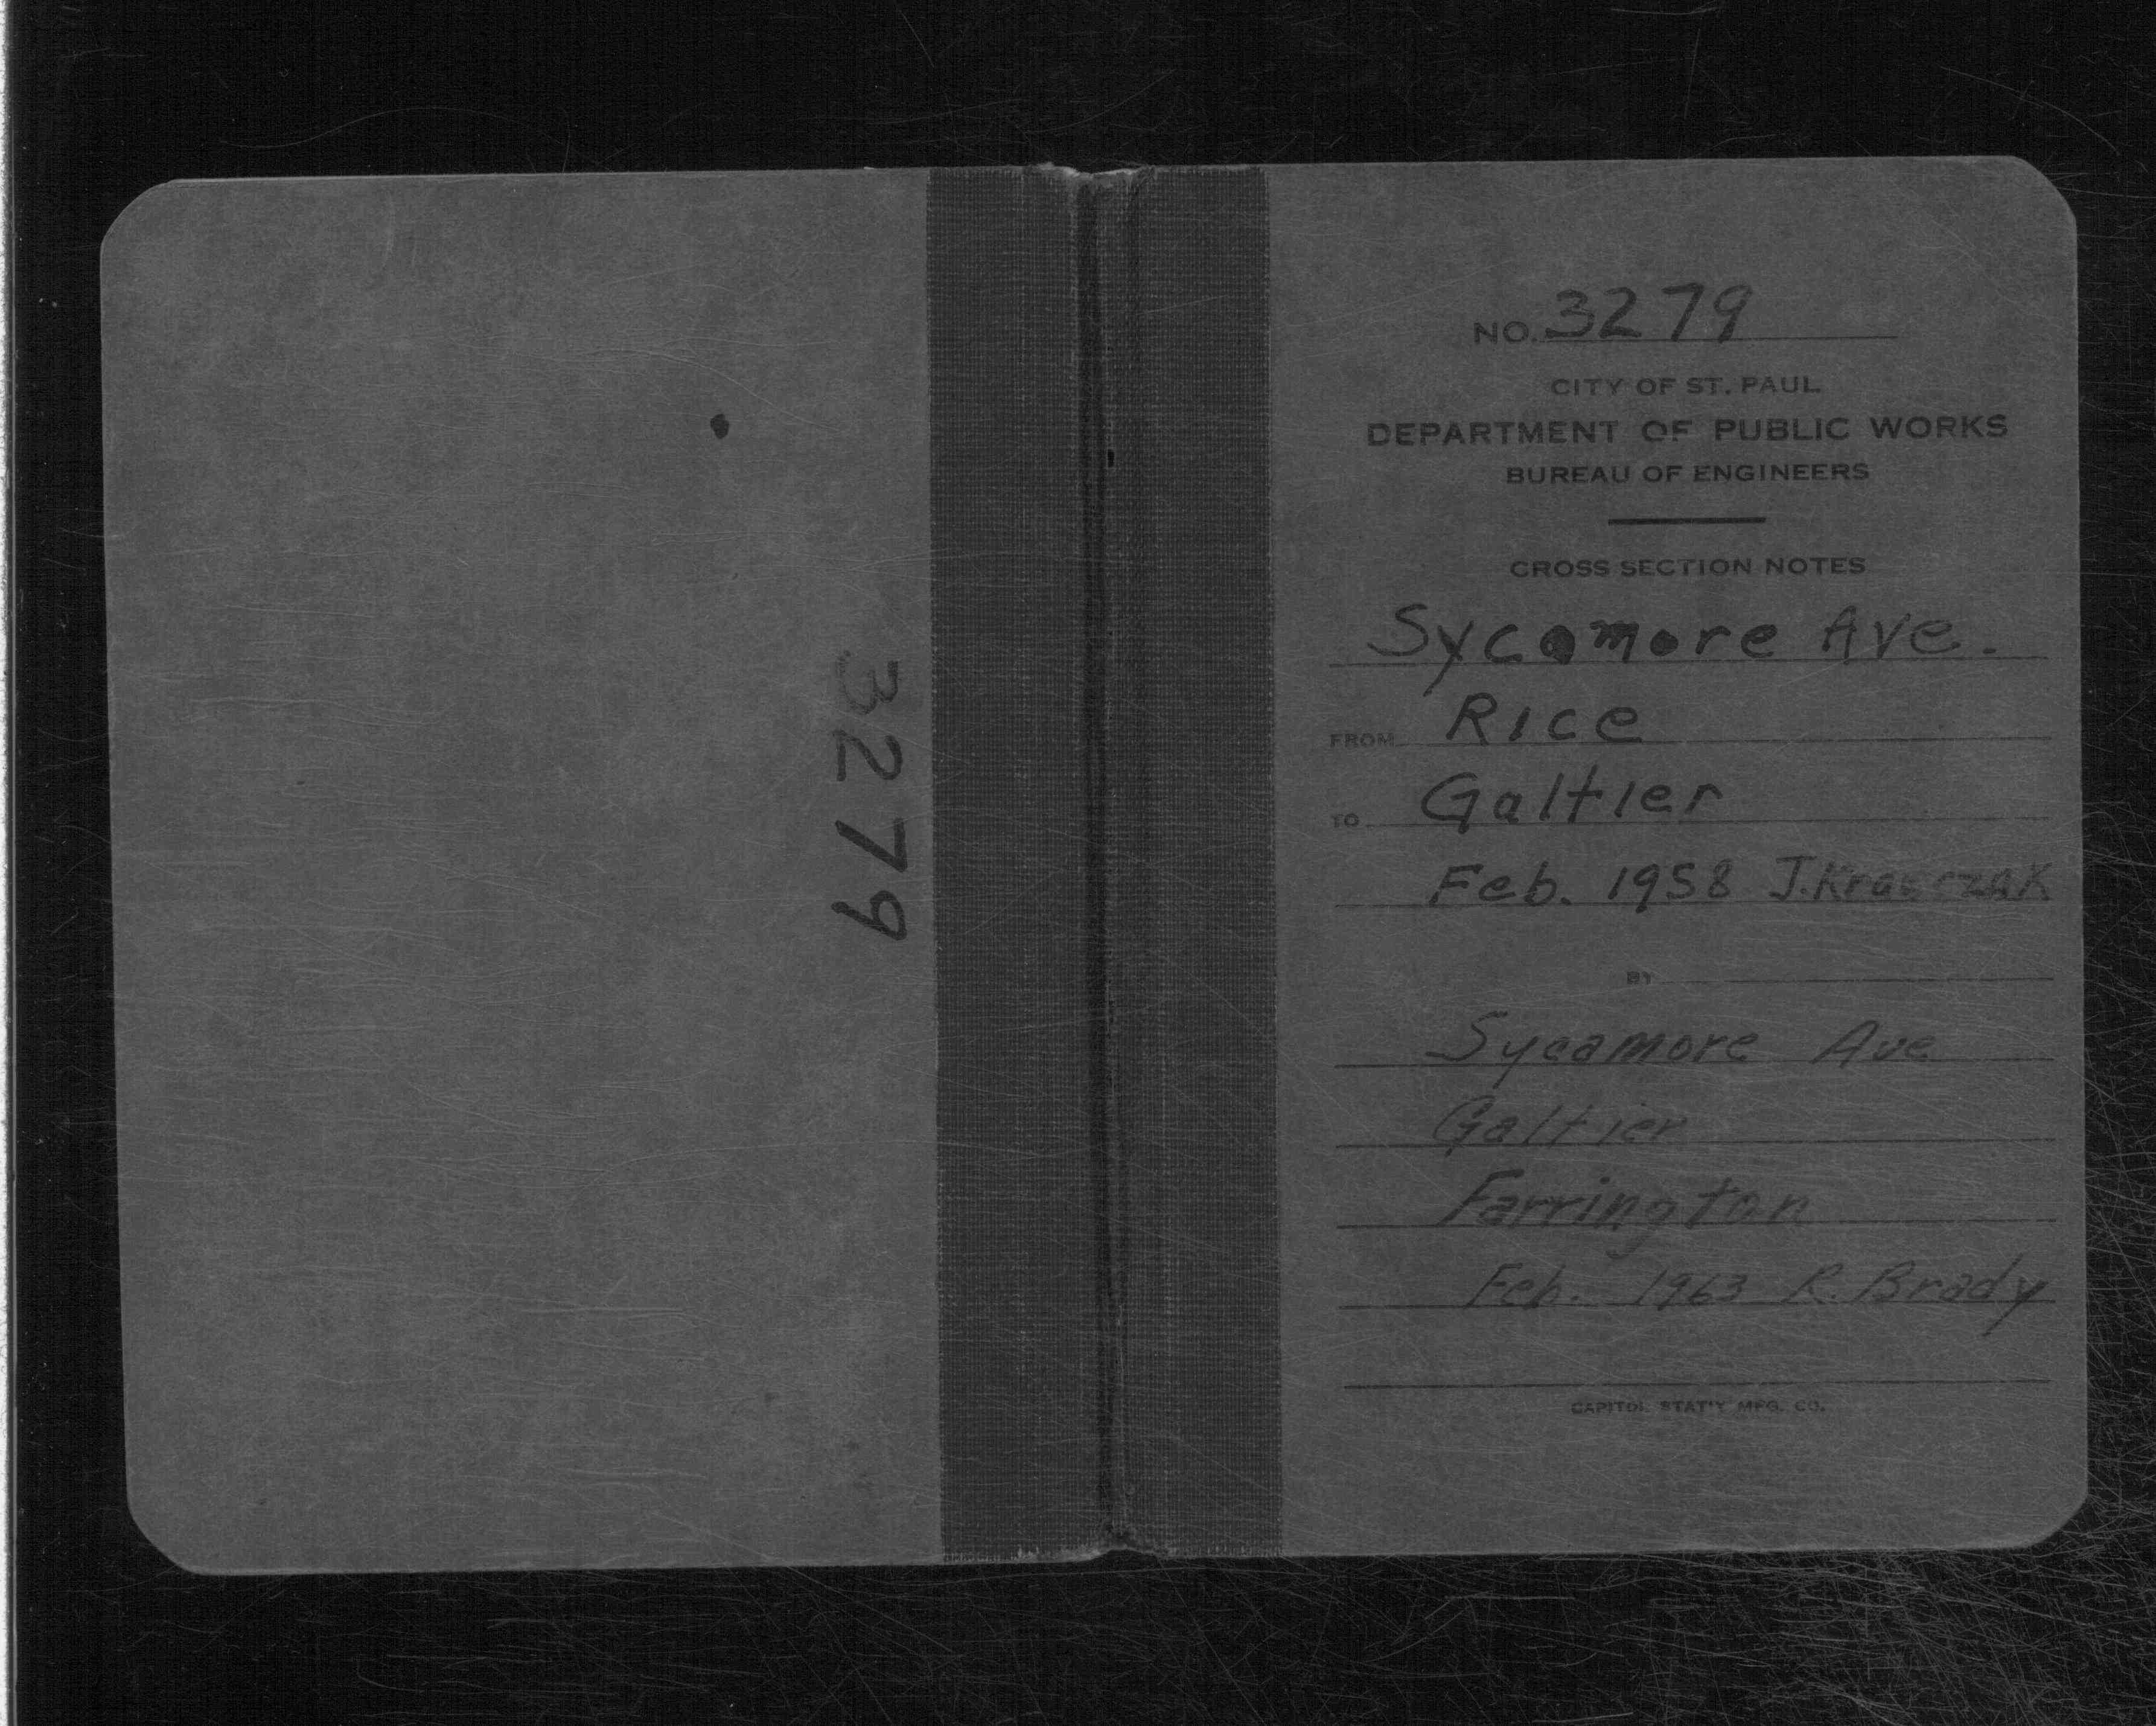 3279
NO. 3279
CITY OF ST. PAUL
DEPARTMENT OF PUBLIC WORKS
BUREAU OF ENGINEERS
CROSS SECTION NOTES
Sycamore Ave.
FROM Rice
TO Galtier
Feb. 1958 J.
BY
Sycamore Ave
Galtier
Farrington
Feb. 1963 R. Brady
CAPITOL STAT'Y MFG. CO.